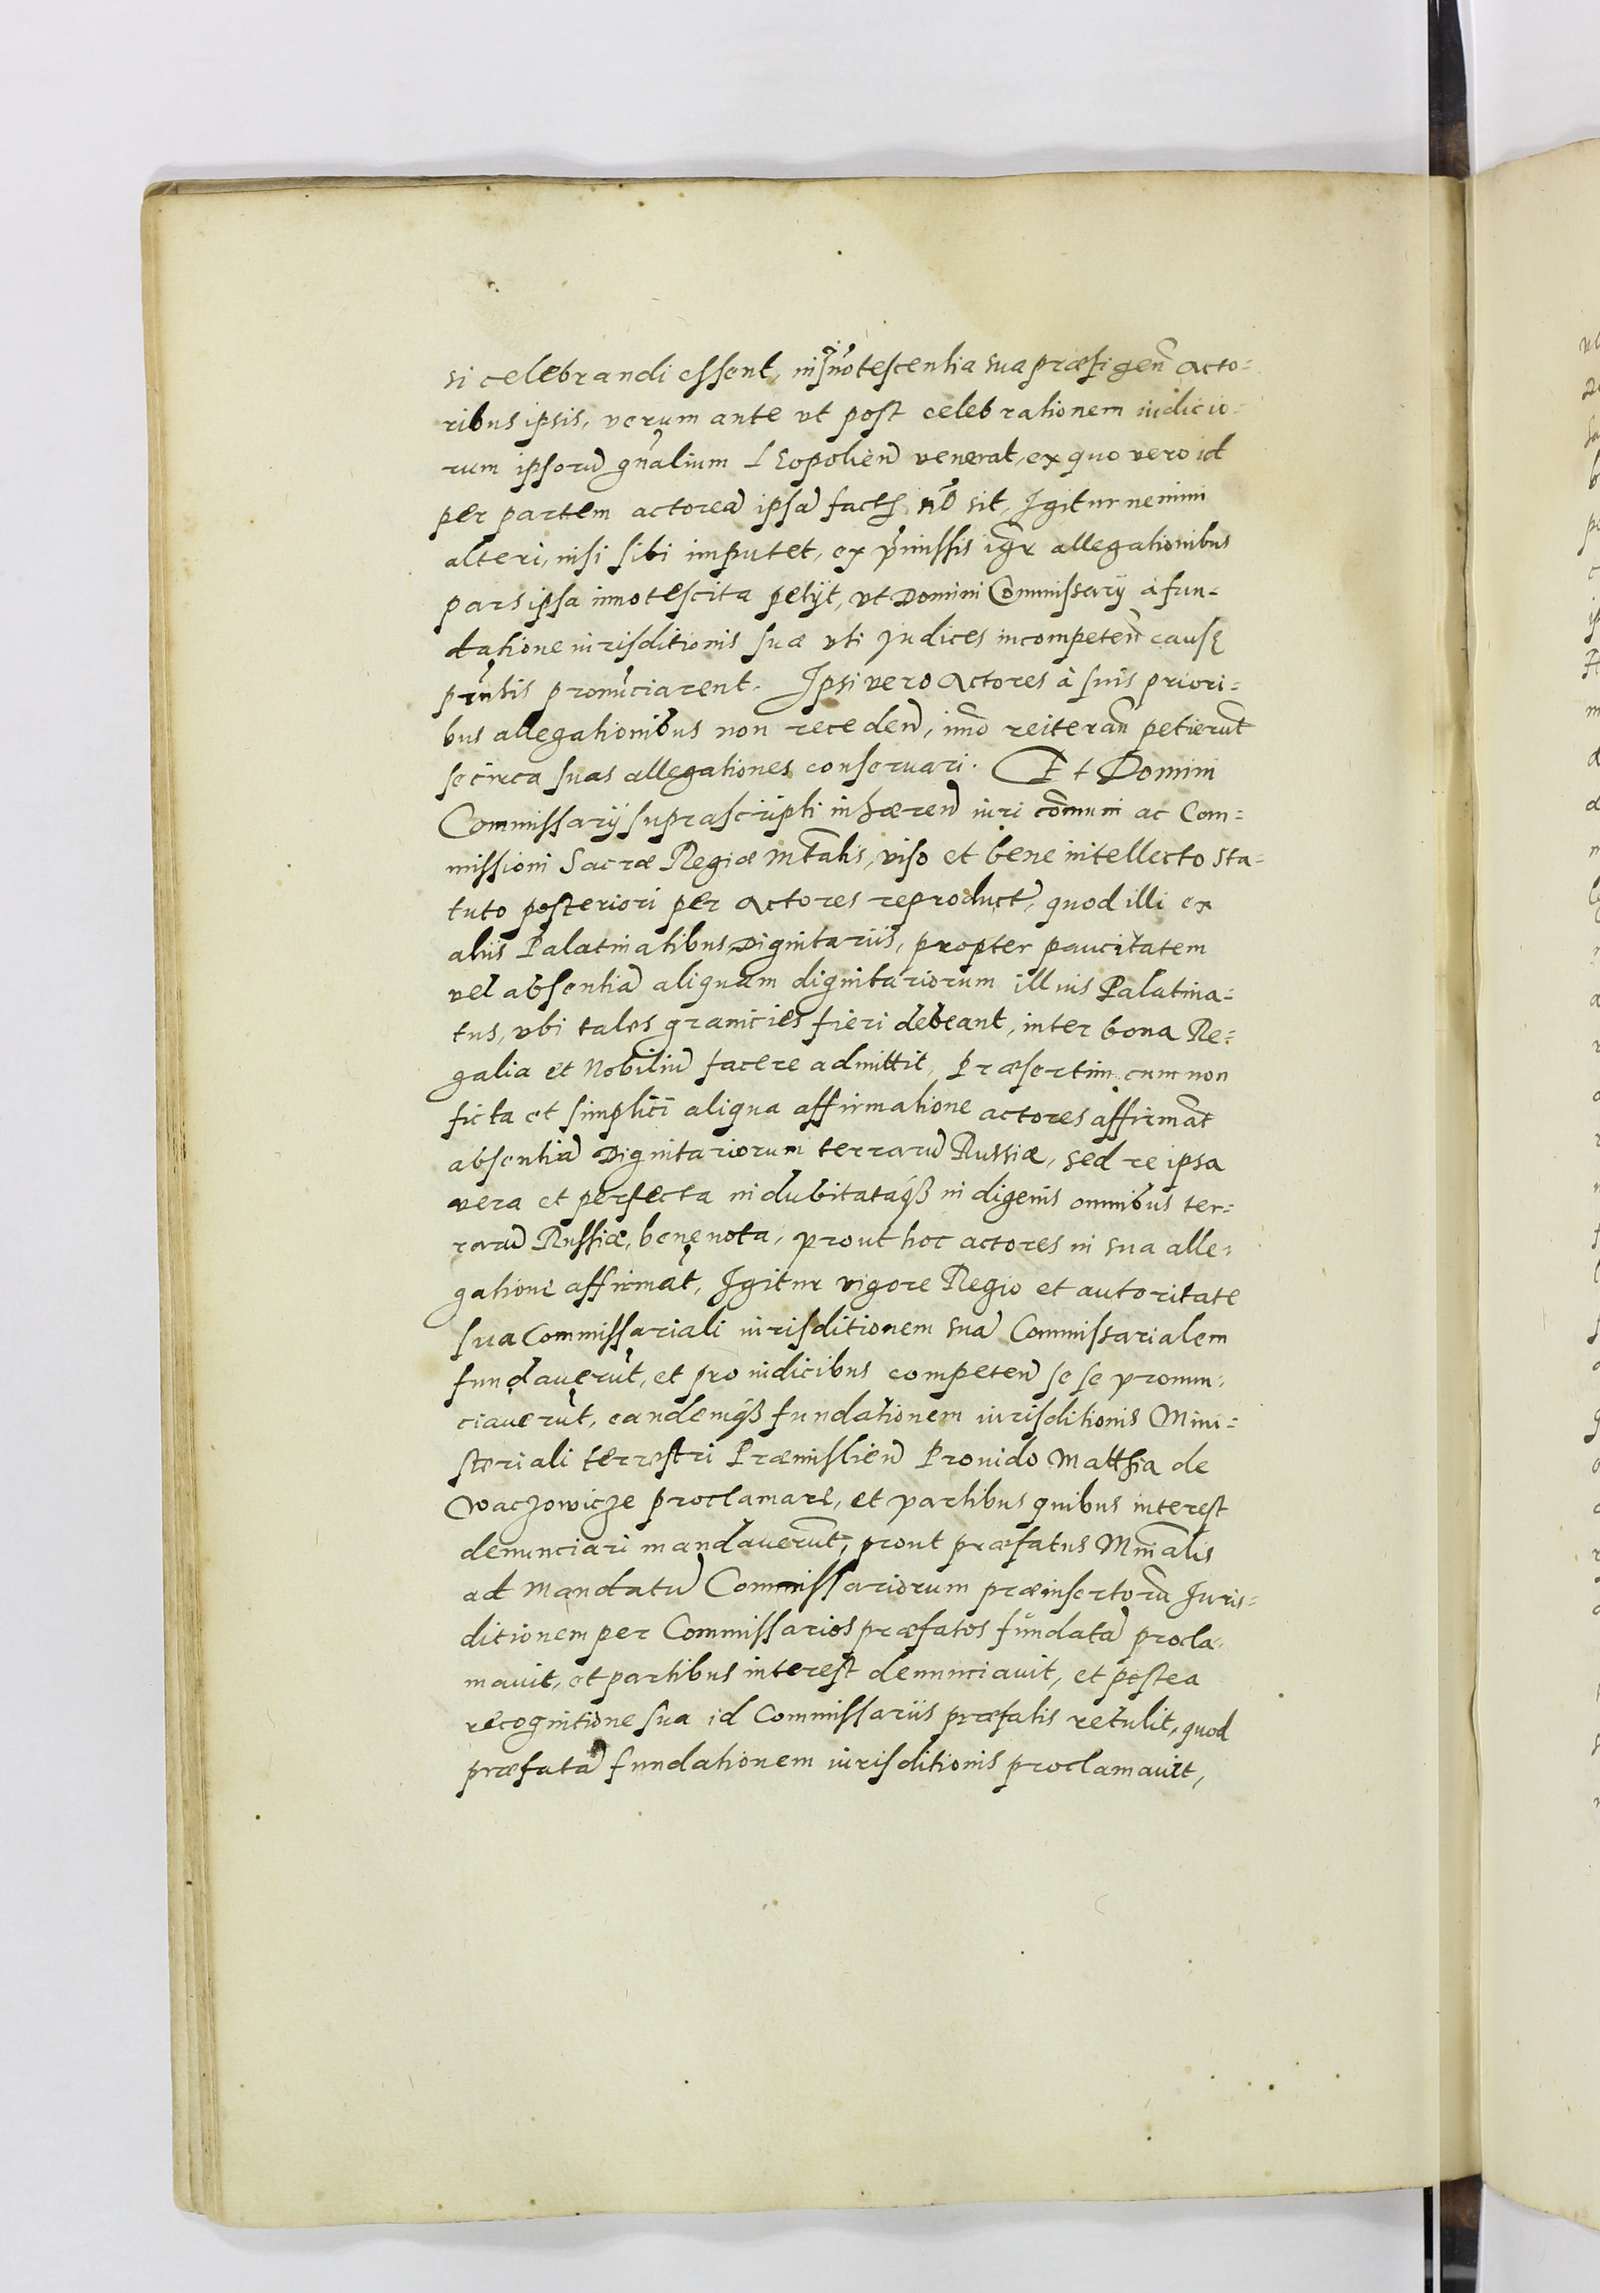 si celebrandi essent, innotescentia sua præfigen̄ Acto-
ribus ipsis, verum ante ut post celebrationem iudicio-
rum ipsorū gn̄alium Leopolien̄ venerat, ex quo vero id
per partem actoreā ipsā factū nō sit, Igitur nemini
alteri, nisi sibi imputet, ex p̄missis igr̄ allegationibus
pars ipsa innotescita petijt, ut Domini Commissarij à fun-
datione iurisditionis suæ uti Judices incompeten̄ causę
pr̄ntis pronūciarent. Ipsi vero Actores à suis priori-
bus allegationibus non receden̄, imō reiteran̄ petierūt
se circa suas allegationes conseruari. Et Domini
Commissarij suprascripti inhæren̄ iuri cōmuni ac Com-
missioni Sacræ Regiæ Mt̄atis, viso et bene intellecto sta-
tuto posteriori per Actores reproduct̄, quod illi ex
aliis Palatinatibus Dignitariis, propter paucitatem
vel absentiā aliquam dignitariorum illius Palatina-
tus, ubi tales granicies fieri debeant, inter bona Re-
galia et Nobiliū facere admittit, Præsertim cum non
ficta et simplici aliqua affirmatione actores affirmāt
absentiā Dignitariorum terrarū Russiæ, sed re ipsa
vera et perfecta indubitataq́ß indigenis omnibus ter-
rarū Russiæ, bene nota, prout hoc actores in sua alle-
gatione affirmāt, Igitur vigore Regio et autoritate
sua Commissariali iurisditionem suā Commissarialem
fundauerūt, et pro iudicibus competen̄ se se pronun-
ciauerūt, eandemq́ß fundationem iurisditionis Mini-
steriali terrestri Præmislien̄ Prouido Matthia de
Waczowicze proclamare, et partibus quibus interest
denunciari mandauerūt, prout præfatus Mn̄ialis
ad mandatū Commissariorum præinsertorū Juris-
ditionem per Commissarios præfatos fundatā procla-
mauit, et partibus interest denunciauit, et postea
recognitione sua id Commissariis præfatis retulit, quod
præfatā fundationem iurisditionis proclamauit,